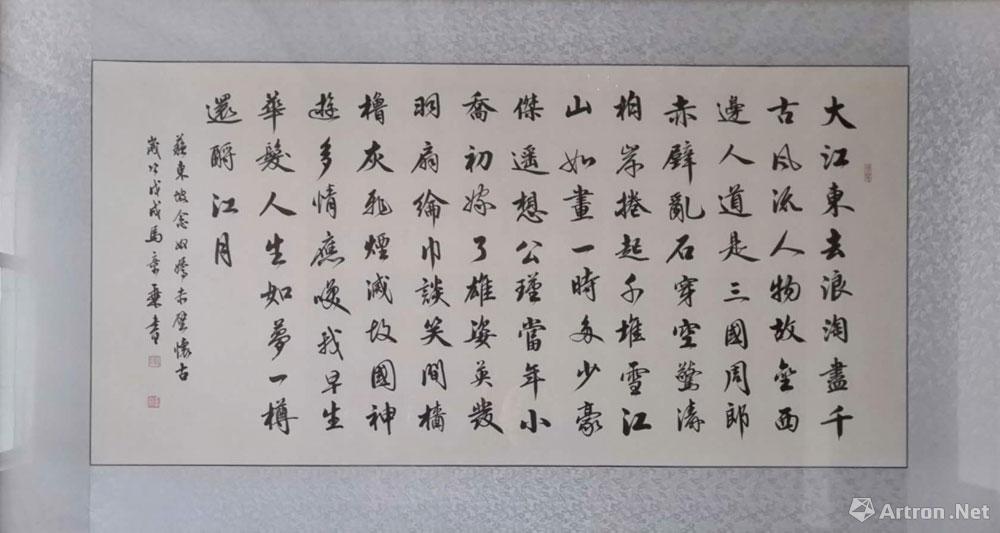 大江東去浪淘盡千
古風流人物故壘西
邊人道是三國周郎
赤壁亂石穿空驚濤
拍岸捲起千堆雪江
山如畫一時多少豪
傑遥想公瑾當年小
喬初嫁了雄姿英發
羽扇綸巾談笑間檣
櫓灰飛煙滅故國神
遊多情應笑我早生
華髮人生如夢一樽
還酹江月
蘇東坡念奴嬌赤壁懷古
歲次戊戌馬章乘書
Artron.Net